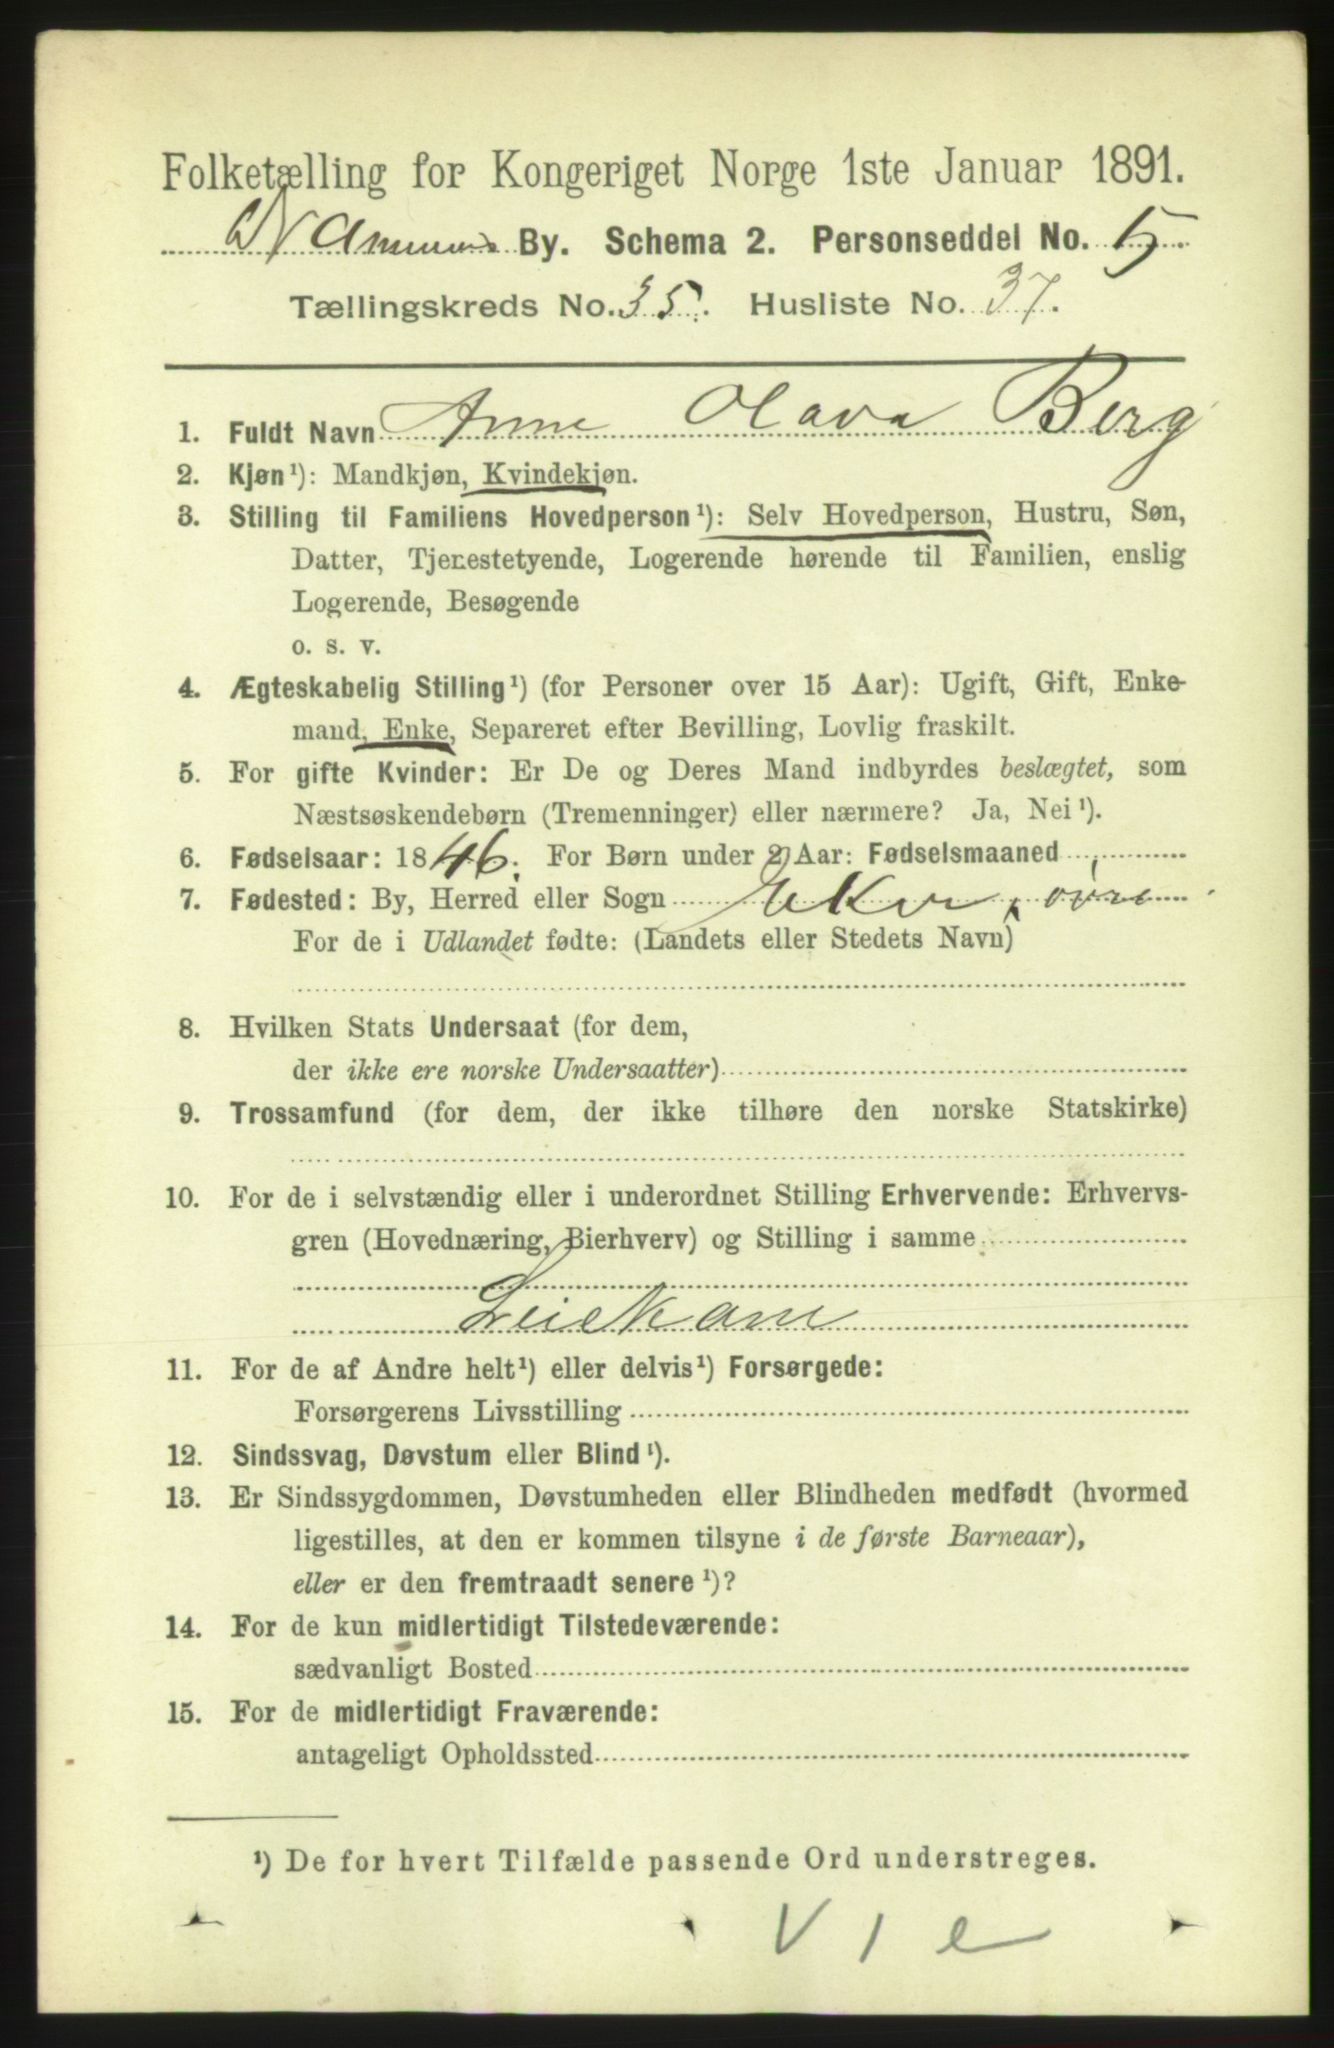 Folketælling for Kongeriget Norge 1ste Januar 1891.
Drammens By. Schema 2. Personseddel No. 5
Tællingskreds No. 35. Husliste No. 37.
1. Fuldt Navn Anne Olava Berg
2. Kjøn¹): Mandkjøn, Kvindekjøn.
3. Stilling til Familiens Hovedperson¹): Selv Hovedperson, Hustru, Søn,
Datter, Tjenestetyende, Logerende hørende til Familien, enslig
Logerende, Besøgende
o. s. v.
4. Ægteskabelig Stilling¹) (for Personer over 15 Aar): Ugift, Gift, Enke-
mand, Enke, Separeret efter Bevilling, Lovlig fraskilt.
5. For gifte Kvinder: Er De og Deres Mand indbyrdes beslægtet, som
Næstsøskendebørn (Tremenninger) eller nærmere? Ja, Nei¹).
6. Fødselsaar: 1846. For Børn under 2 Aar: Fødselsmaaned
7. Fødested: By, Herred eller Sogn Eker, øvre
For de i Udlandet fødte: (Landets eller Stedets Navn)
8. Hvilken Stats Undersaat (for dem,
der ikke ere norske Undersaatter)
9. Trossamfund (for dem, der ikke tilhøre den norske Statskirke)
10. For de i selvstændig eller i underordnet Stilling Erhvervende: Erhvervs-
gren (Hovednæring, Bierhverv) og Stilling i samme
Leiekone
11. For de af Andre helt¹) eller delvis¹) Forsørgede:
Forsørgerens Livsstilling
12. Sindssvag, Døvstum eller Blind¹).
13. Er Sindssygdommen, Døvstumheden eller Blindheden medfødt (hvormed
ligestilles, at den er kommen tilsyne i de første Barneaar),
eller er den fremtraadt senere¹)?
14. For de kun midlertidigt Tilstedeværende:
sædvanligt Bosted
15. For de midlertidigt Fraværende:
antageligt Opholdssted
¹) De for hvert Tilfælde passende Ord understreges.
V 1 e